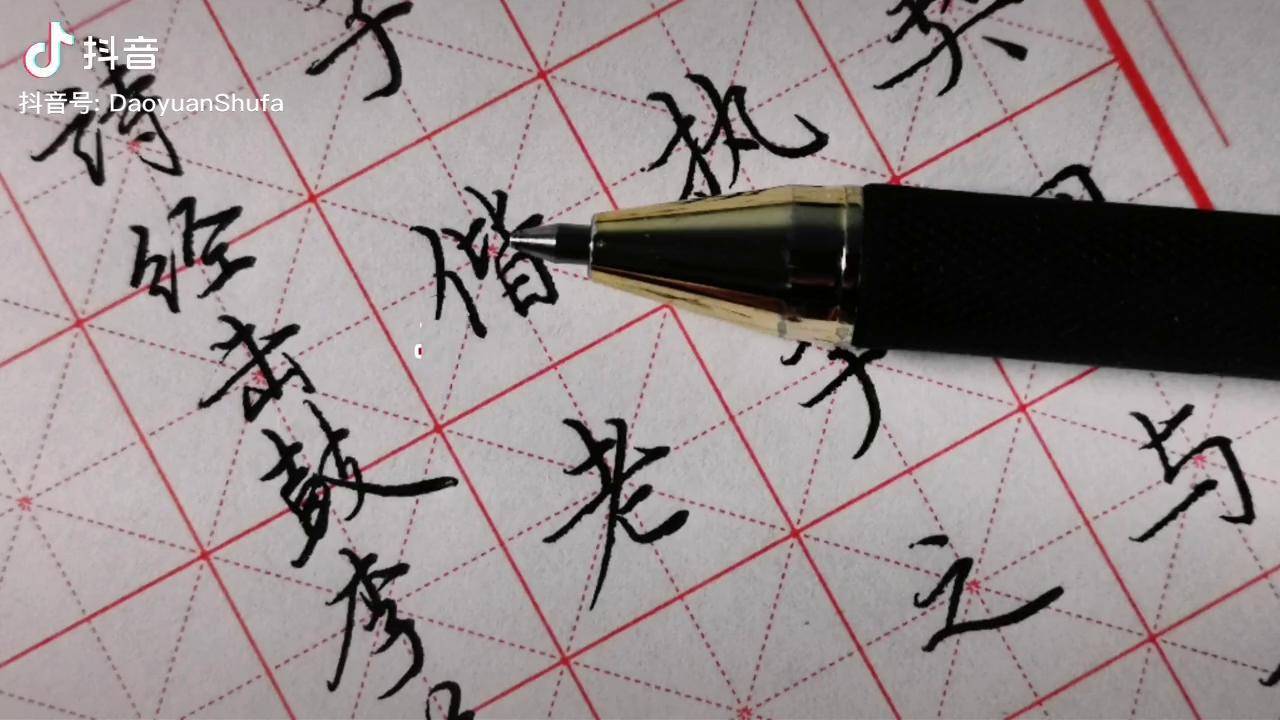 抖音
抖音号: DaoyuanShufa
契
与
执子之
子偕老
诗经击鼓